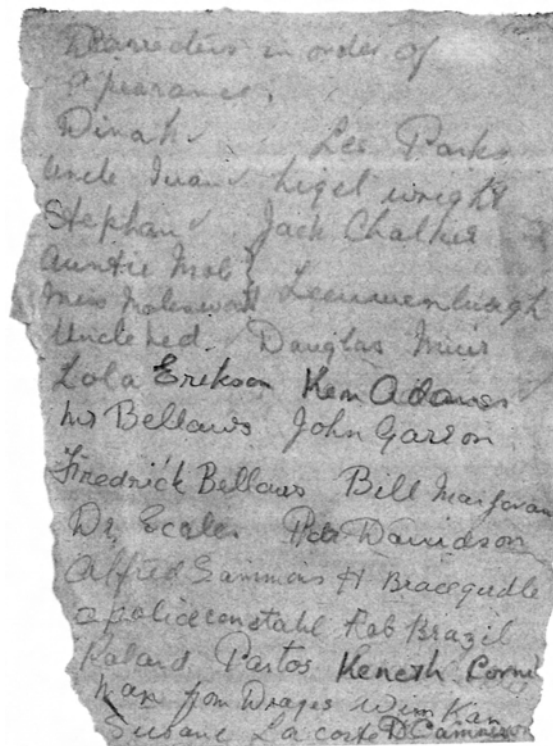 Characters in order of
apearance.
Dinah Les Parks
Uncle Ivan Nigel wright
Stephan Jack Chalker
Auntie Mob }
Miss Molesworth } Leeuwenburgh
Uncle Ned. Douglas Muir
Lola Erikson Ken Adams
Mr Bellaws John Garron
Fredrick Bellaws Bill
Dr. Ecales Pete Davidson
Alfred Sammons H Bracegirdle
a policeconstabl Rob Brazil
Roland Partos Keneth
Man from Drages Wim Kan
Susane Lacoste D Cameron